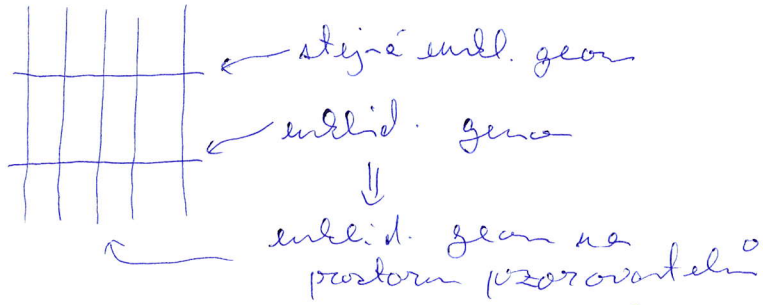 stejná eukl. geom
euklid. geom
⇓
euklid. geom na
prostoru pozorovatelů